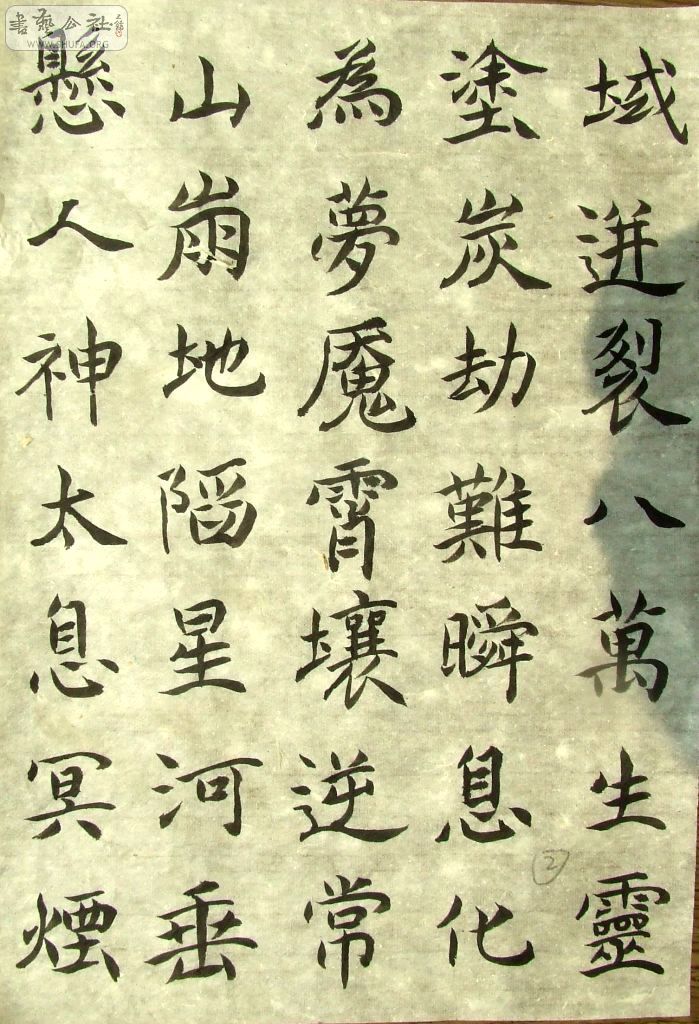 域迸裂八萬生靈
塗炭劫難瞬息化
為夢魘霄壤逆常
山崩地陷星河垂
懸人神太息冥煙
②
書藝公社
WWW.SHUFA.ORG